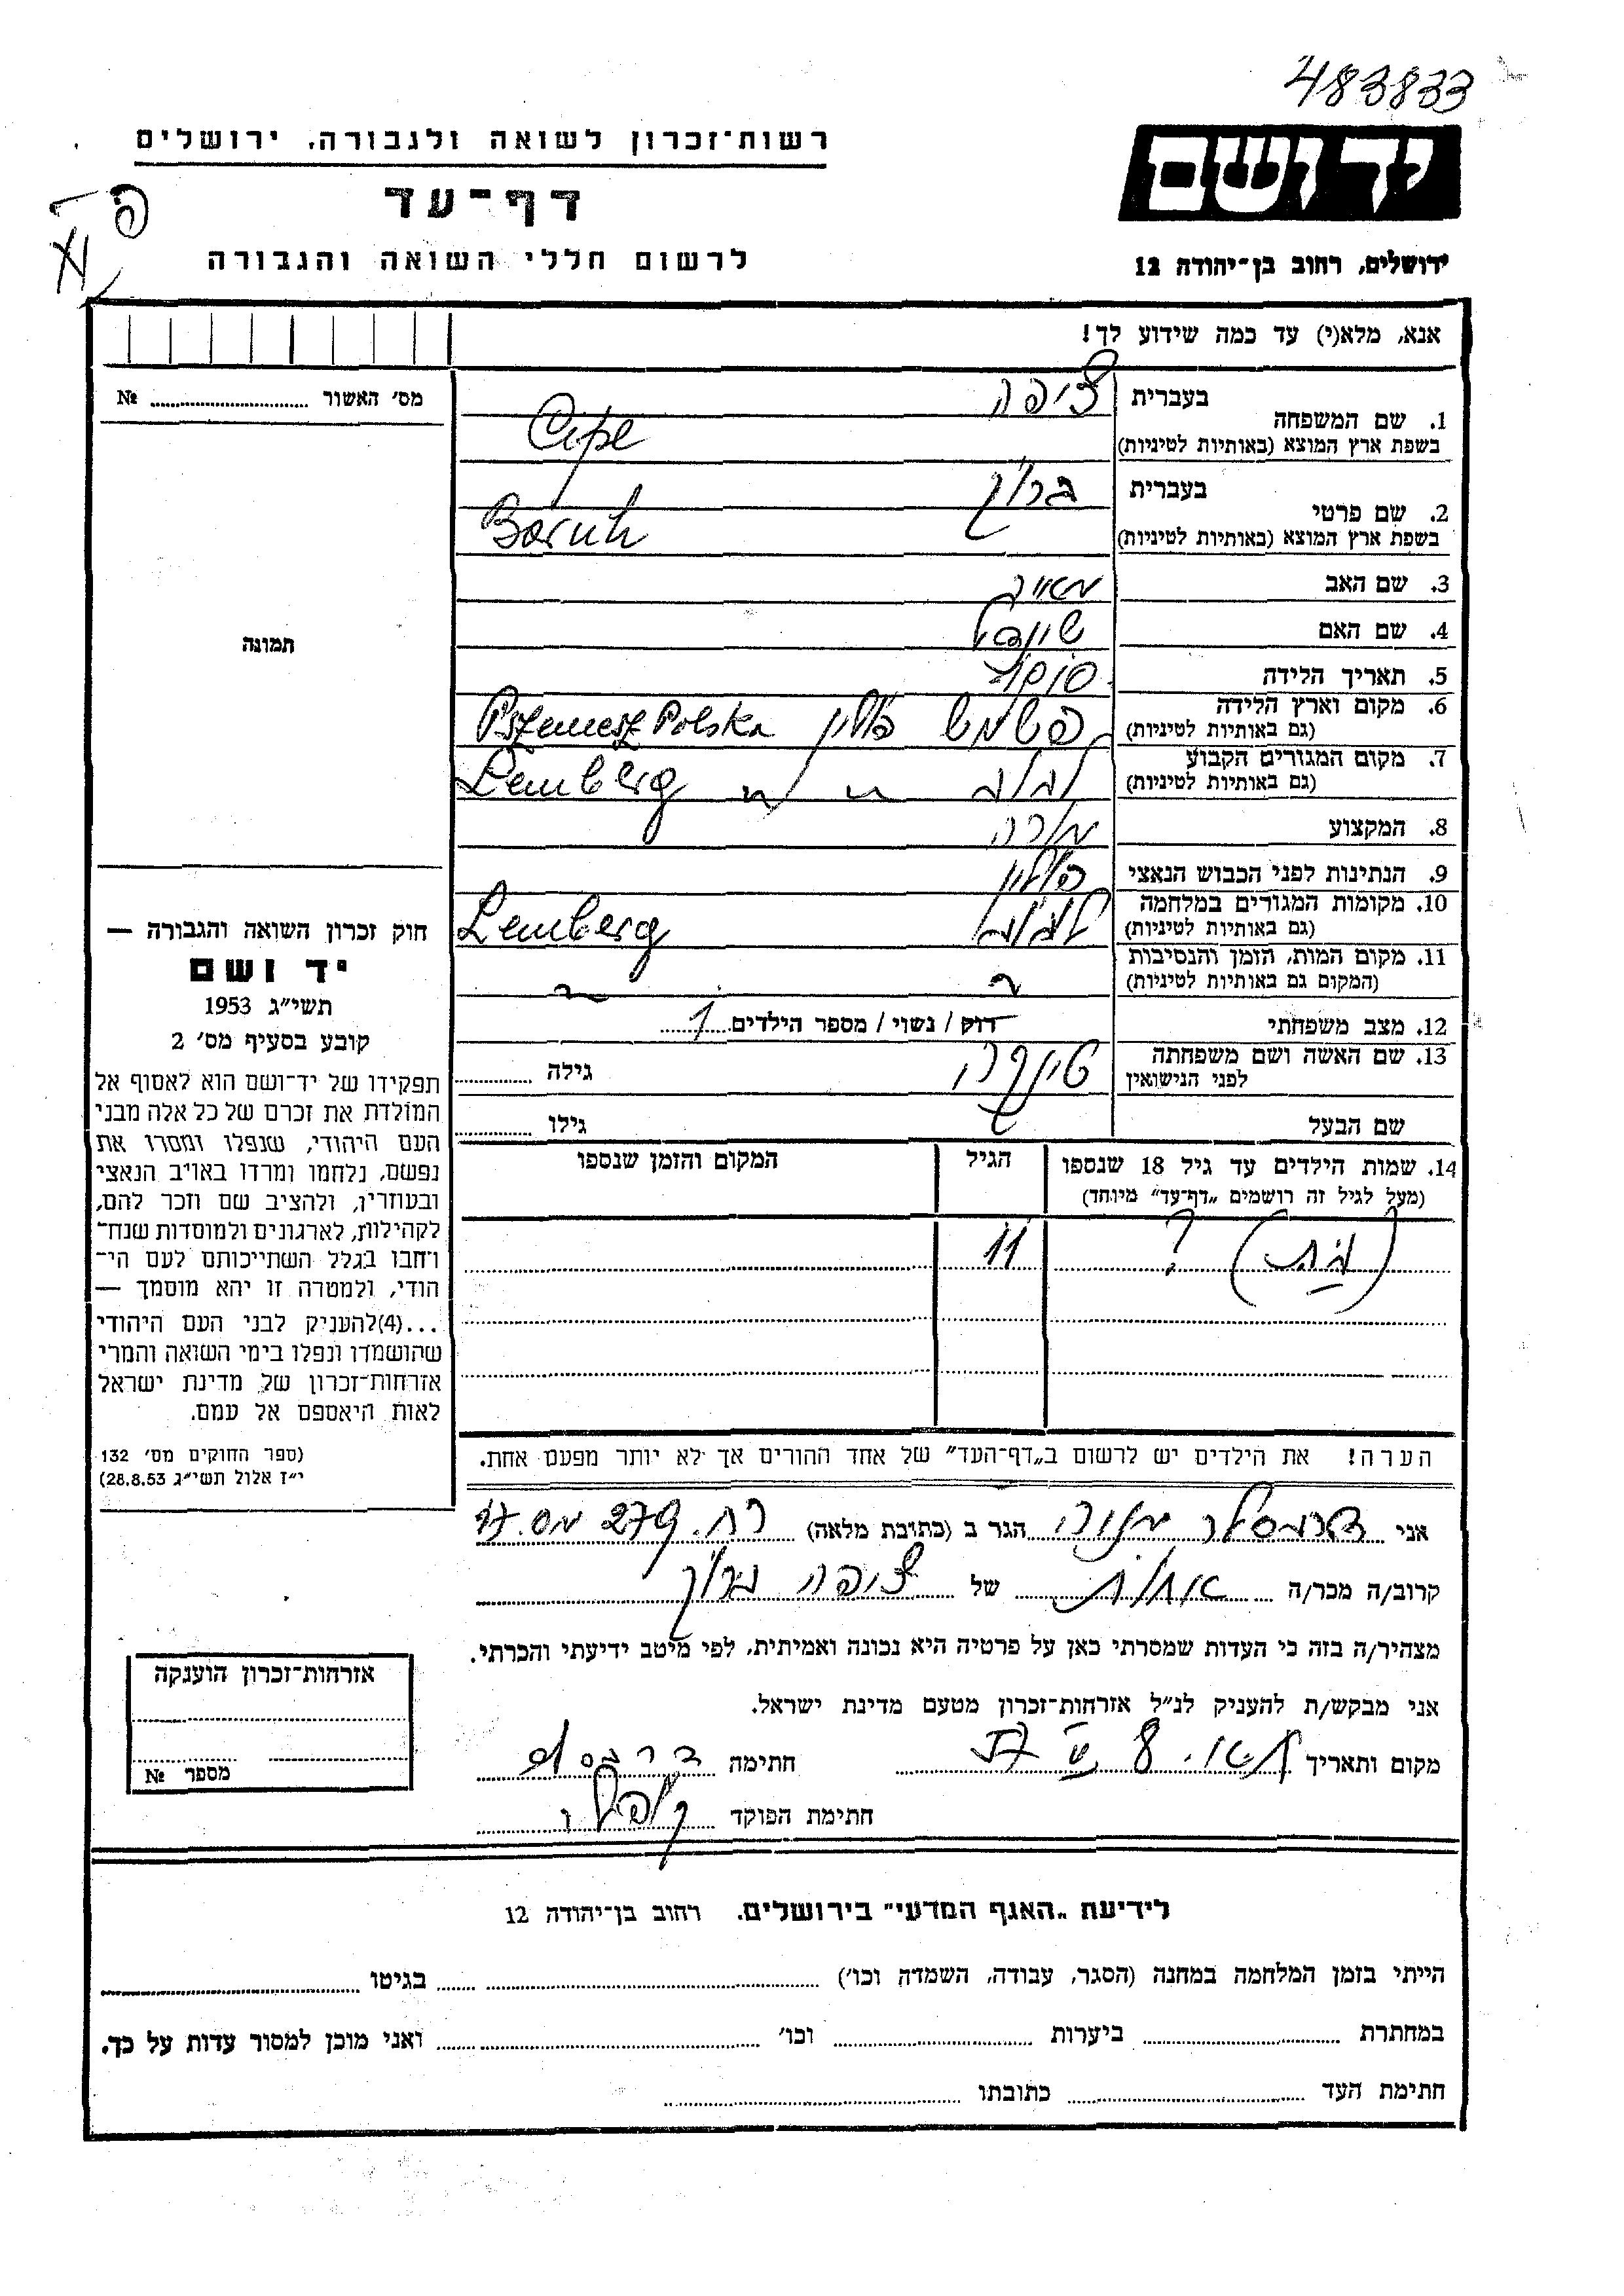 483833
רשות־זכרון לשואה ולגבורה, ירושלים
יד ושם
דף־עד
לרשום חללי השואה והגבורה
ירושלים, רחוב בן־יהודה 12
אנא, מלא(י) עד כמה שידוע לך!
מס׳ האשור № 
1. שם המשפחה בעברית ציפה
בשפת ארץ המוצא (באותיות לטיניות) Cipe
2. שם פרטי בעברית ברוך
בשפת ארץ המוצא (באותיות לטיניות) Boruh
3. שם האב מאיר
4. שם האם
5. תאריך הלידה
6. מקום וארץ הלידה (גם באותיות לטיניות) פשמש פולין Pszemesz Polska
7. מקום המגורים הקבוע (גם באותיות לטיניות) לבוב " " Lemberg
8. המקצוע מורה
9. הנתינות לפני הכבוש הנאצי פולין
10. מקומות המגורים במלחמה (גם באותיות לטיניות) לבוב Lemberg
11. מקום המות, הזמן והנסיבות (המקום גם באותיות לטיניות)
12. מצב משפחתי רוק / נשוי / מספר הילדים 1
13. שם האשה ושם משפחתה לפני הנישואין גילה
שם הבעל גילו
14. שמות הילדים עד גיל 18 שנספו הגיל המקום והזמן שנספו
(מעל לגיל זה רושמים „דף־עד” מיוחד)
(בת) ? 11
הערה! את הילדים יש לרשום ב„דף־העד” של אחד ההורים אך לא יותר מפעם אחת.
תמונה
חוק זכרון השואה והגבורה —
יד ושם
תשי״ג 1953
קובע בסעיף מס׳ 2
תפקידו של יד־ושם הוא לאסוף אל
המולדת את זכרם של כל אלה מבני
העם היהודי, שנפלו ומסרו את
נפשם, נלחמו ומרדו באויב הנאצי
ובעוזריו, ולהציב שם וזכר להם,
לקהילות, לארגונים ולמוסדות שנח־
רחבו בגלל השתייכותם לעם הי־
הודי, ולמטרה זו יהא מוסמך —
...(4)להעניק לבני העם היהודי
שהושמדו ונפלו בימי השואה והמרי
אזרחות־זכרון של מדינת ישראל
לאות היאספם אל עמם.
(ספר החוקים מס׳ 132
י״ז אלול תשי״ג 28.8.53)
אני הגר ב (כתובת מלאה) רח. 279 מס. 17
קרוב/ה מכר/ה אחות של ציפה ברוך
מצהיר/ה בזה כי העדות שמסרתי כאן על פרטיה היא נכונה ואמיתית, לפי מיטב ידיעתי והכרתי.
אני מבקש/ת להעניק לנ״ל אזרחות־זכרון מטעם מדינת ישראל.
מקום ותאריך חתימה
חתימת הפוקד
אזרחות־זכרון הוענקה
מספר №
לידיעת „האגף המדעי” בירושלים. רחוב בן־יהודה 12
הייתי בזמן המלחמה במחנה (הסגר, עבודה, השמדה וכו׳) בגיטו
במחתרת ביערות וכו׳ ואני מוכן למסור עדות על כך.
חתימת העד כתובתו